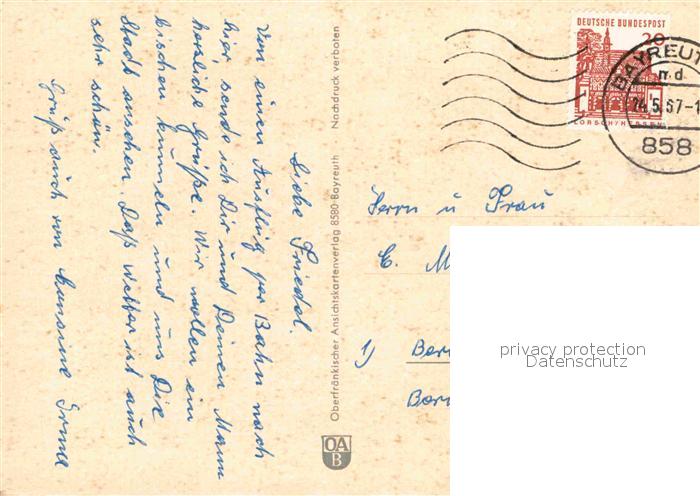 Liebe Friedel.
Von einem Ausflug per Bahn nach
hier, sende ich Dir und Deinen Mann
herzliche Grüße. Wir wollen ein
bischen bummeln und uns Die
Stadt ansehen. Daß Wetter ist auch
sehr schön.
Gruß auch von Cousine Irma
Oberfränkischer Ansichtskartenverlag 8580 Bayreuth Nachdruck verboten
OA
B
DEUTSCHE BUNDESPOST
20
LORSCH/HESSEN
BAYREUT
md
24.5.67-1
858
Herrn u Frau
E. M
1) Ber
Bor
privacy protection
Datenschutz